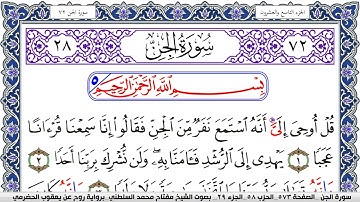 الجزء التاسع والعشرون
سورة الجن ٧٢
٢٨ سُورَةُ الْجِنِّ ٧٢
بِسْمِ اللَّهِ الرَّحْمَٰنِ الرَّحِيمِ
قُلْ أُوحِىَ إِلَىَّ أَنَّهُ ٱسْتَمَعَ نَفَرٌ مِّنَ ٱلْجِنِّ فَقَالُوٓا۟ إِنَّا سَمِعْنَا قُرْءَانًا
عَجَبًا ١ يَهْدِىٓ إِلَى ٱلرُّشْدِ فَـَٔامَنَّا بِهِۦ وَلَن نُّشْرِكَ بِرَبِّنَآ أَحَدًا ٢
سورة الجن الصفحة ٥٧٣ الحزب ٥٨ الجزء ٢٩ بصوت الشيخ مفتاح محمد السلطني برواية روح عن يعقوب الحضرمي